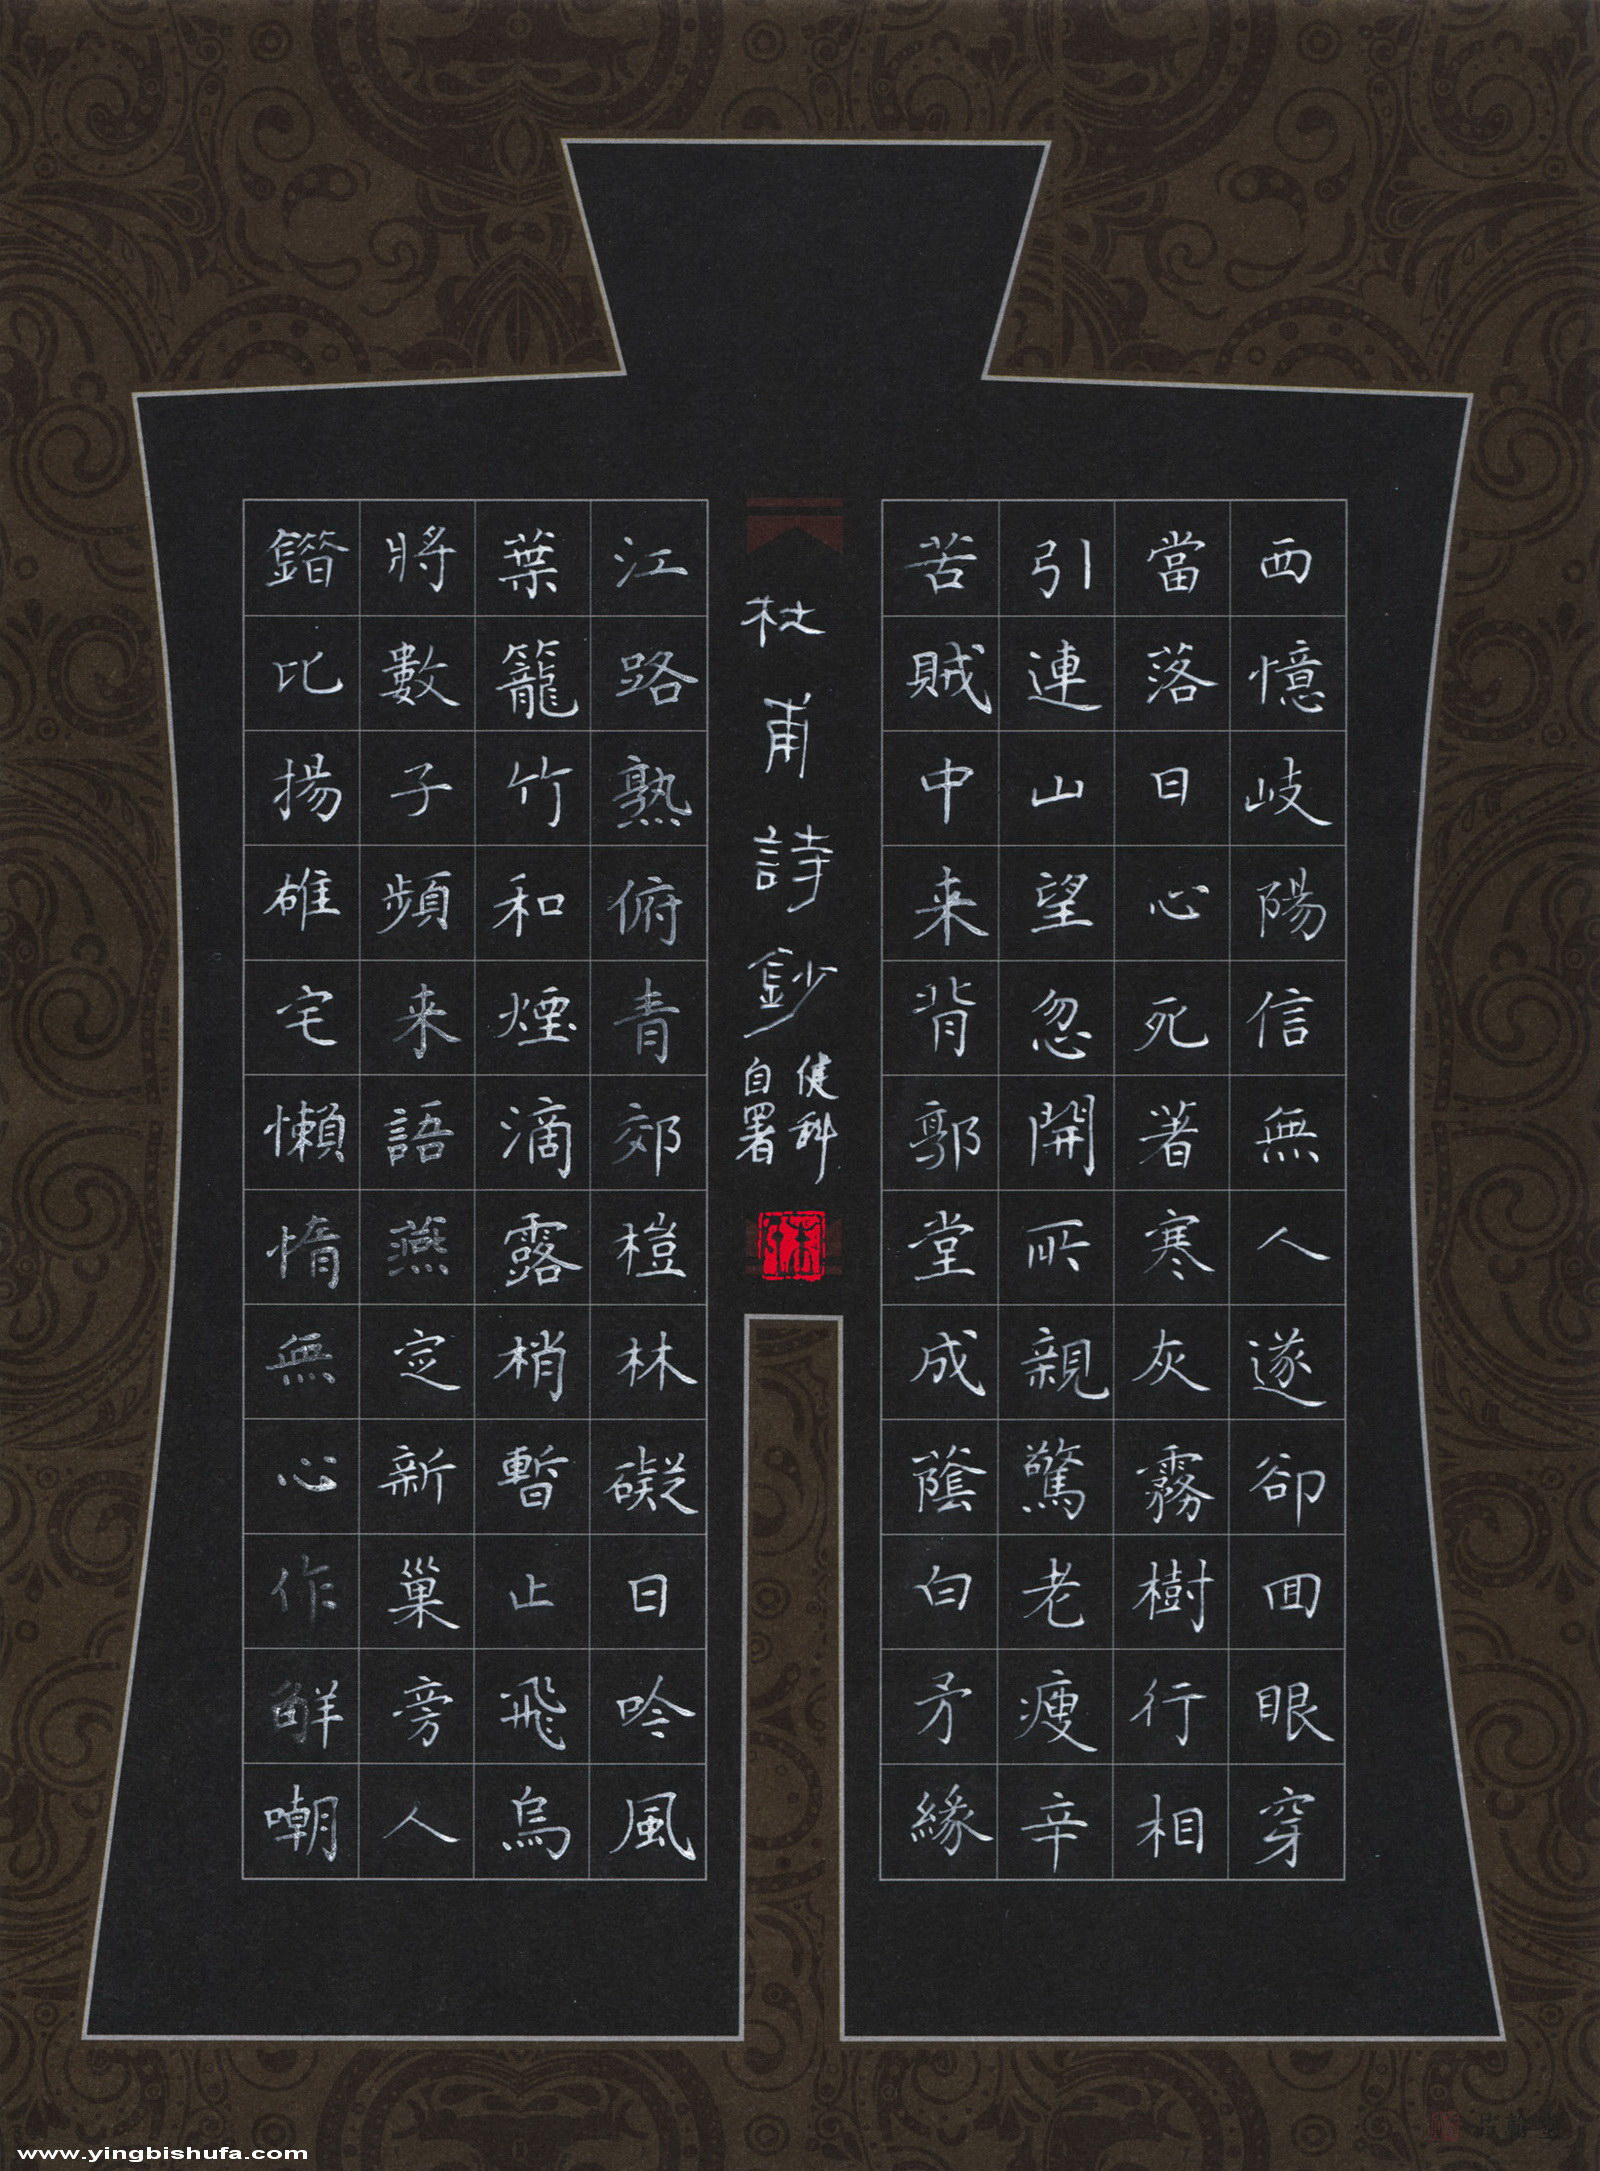 西憶岐陽信無人遂卻囬眼穿
當落日心死著寒灰霧樹行相
引連山望忽開所親驚老瘦辛
苦賊中来背郭堂成蔭白矛緣
杜甫詩鈔
健科
自署
江路熟俯青郊榿林礙日吟風
葉籠竹和煙滴露梢暫止飛烏
將數子頻来語燕定新巢旁人
錯比揚雄宅懶惰無心作解嘲
www.yingbishufa.com